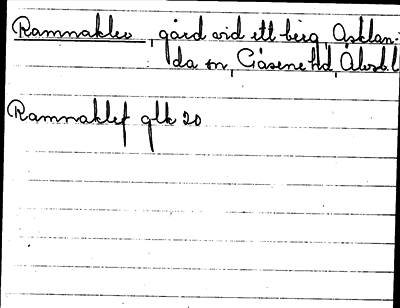 Ramnaklev, gård vid ett berg, Asklan-
da sn, Gäsene hd, Älvsb.l
Ramnaklef glk 20